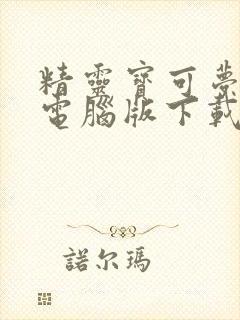 精靈寶可夢
電腦版下載
諾尔瑪